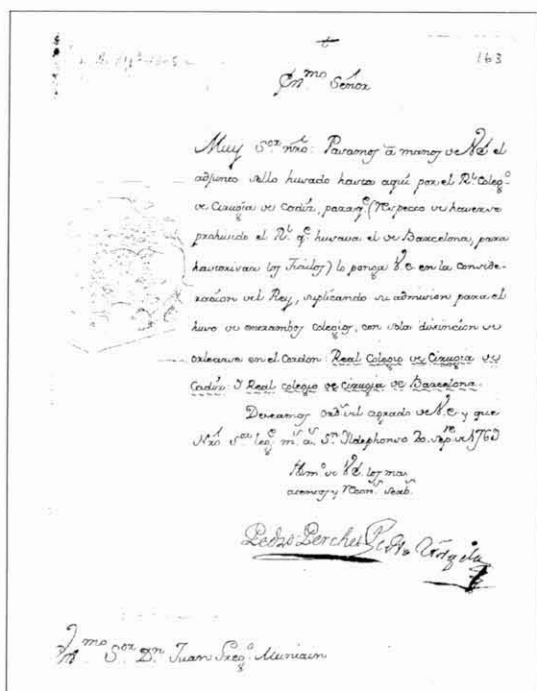 163
Exmo Señor
Muy Sor nro: Pasamos à manos de V.E. el
adjunto sello husado hasta aquí por el Rl. Colego
de Cirugia de Cadiz, para qe (respecto de haverse
prohivido el Rl. qe husava el de Barcelona, para
hautorizar los Titulos) lo ponga V.E. en la conside-
racion del Rey, suplicando su admision para el
huso de entrambos colegios, con sola distincion de
orlearse en el Cordon: Real Colegio de Cirugia de
Cadiz: I Real colegio de Cirugia de Barcelona.
Deseamos del agrado de V.E. y que
Nro Sor gue ms as Sn Ildephonso 20 Sepre de 1769
Exmo Sor Dn Juan Grego Muniain
Pedro Perchet Pedro Virgili